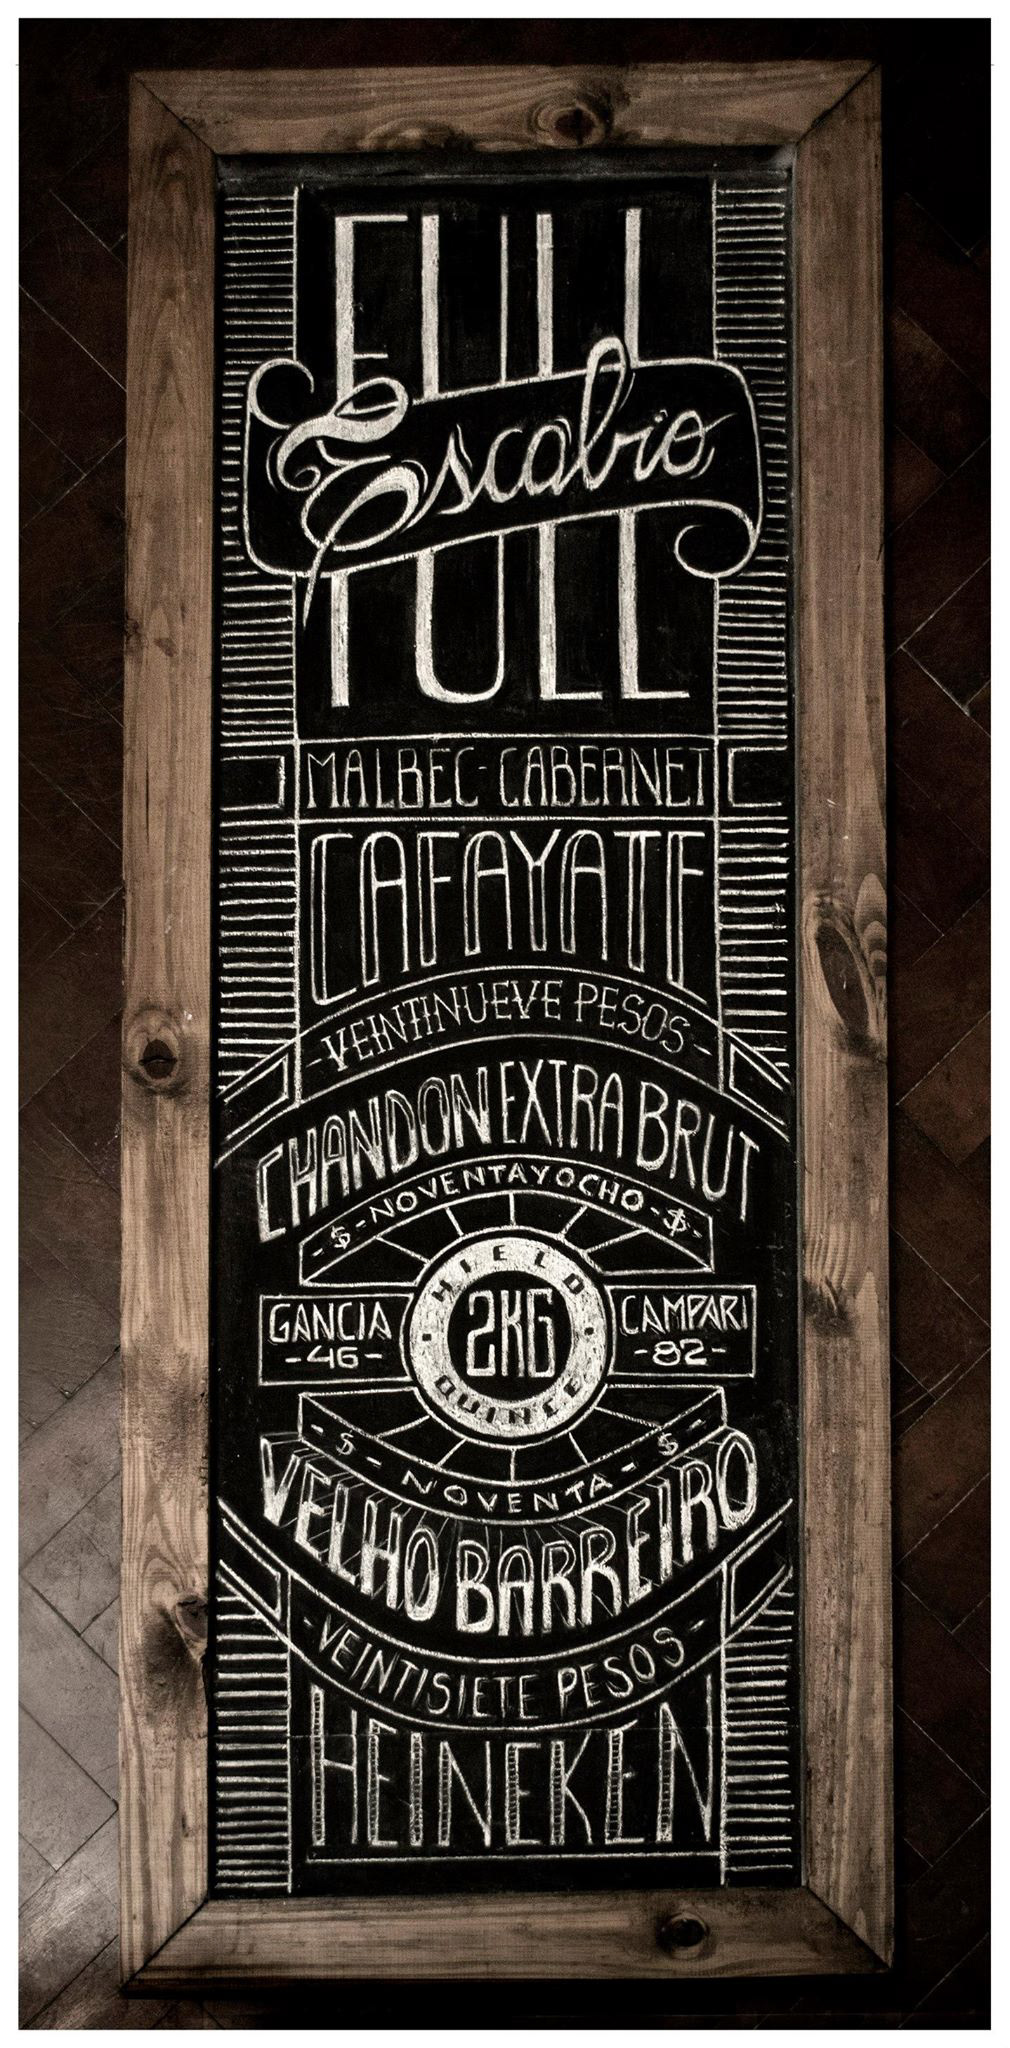 FULL
Escabio
FULL
MALBEC-CABERNET
CAFAYATE
-VEINTINUEVE PESOS-
CHANDON EXTRA BRUT
-$-NOVENTAYOCHO-$-
HIELO
GANCIA
-46-
2KG
CAMPARI
-82-
QUINCE
-$-NOVENTA-$-
VELHO BARREIRO
-VEINTISIETE PESOS-
HEINEKEN